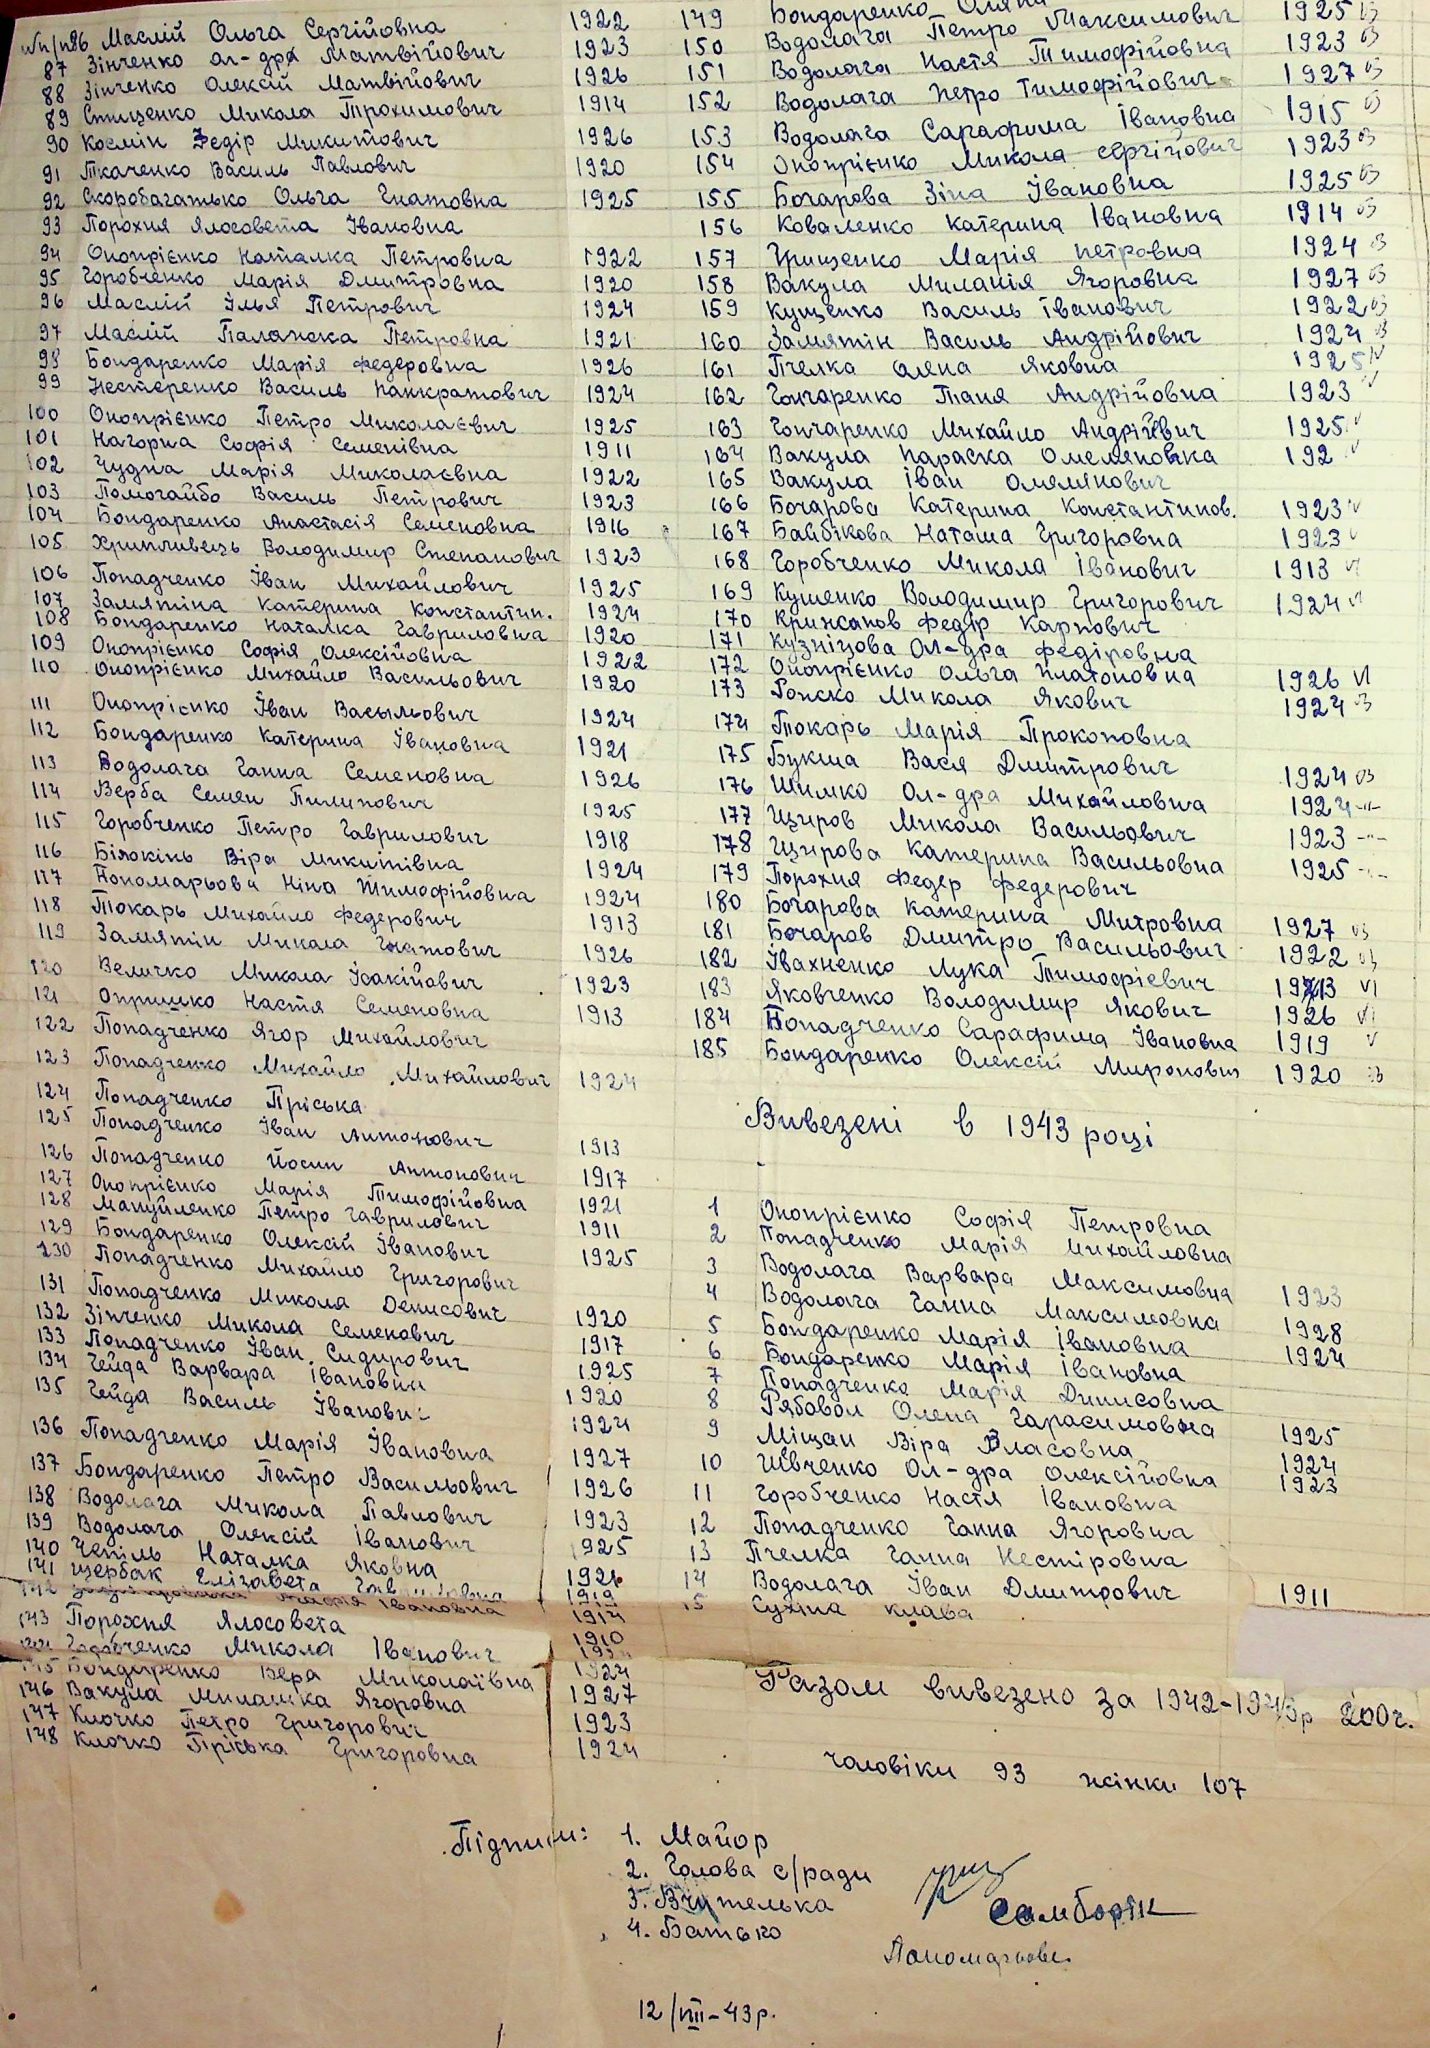 № п/п
86 Маслій Ольга Сергійовна 1922
87 Зінченко Ол-дра Матвійович 1923
88 Зінченко Олексій Матвійович 1926
89 Стиценко Микола Трохимович 1914
90 Космін Федір Микитович 1926
91 Ткаченко Василь Павлович 1920
92 Скоробагатько Ольга Гнатовна 1925
93 Порохня Ялосовета Івановна
94 Онопрієнко Наталка Петровна 1922
95 Горобченко Марія Дмитровна 1920
96 Маслій Ілья Петрович 1924
97 Маслій Палажка Петровна 1921
98 Бондаренко Марія Федеровна 1926
99 Нестеренко Василь Панкратович 1924
100 Онопрієнко Петро Миколаєвич 1925
101 Нагорна Софія Семенівна 1911
102 Чудна Марія Миколаєвна 1922
103 Помогайбо Василь Петрович 1923
104 Бондаренко Анастасія Семеновна 1916
105 Хрипливець Володимир Степанович 1923
106 Попадченко Іван Михайлович 1925
107 Замятіна Катерина Константин. 1924
108 Бондаренко Наталка Гавриловна 1920
109 Онопрієнко Софія Олексійовна 1922
110 Онопрієнко Михайло Васильович 1920
111 Онопрієнко Іван Васыльович 1924
112 Бондаренко Катерина Івановна 1921
113 Водолага Ганна Семеновна 1926
114 Верба Семен Пилипович 1925
115 Горобченко Петро Гаврилович 1918
116 Білокінь Віра Микитівна 1924
117 Пономарьова Ніна Тимофійовна 1924
118 Токарь Михайло Федерович 1913
119 Замятін Микола Гнатович 1926
120 Величко Микола Ісакійович 1923
121 Опришко Настя Семеновна 1913
122 Попадченко Ягор Михайлович
123 Попадченко Михайло Михайлович 1924
124 Попадченко Пріська
125 Попадченко Іван Антонович 1913
126 Попадченко Йосип Антонович 1917
127 Онопрієнко Марія Тимофійовна 1921
128 Мануйленко Петро Гаврилович 1911
129 Бондаренко Олексій Іванович 1925
130 Попадченко Михайло Григорович
131 Попадченко Микола Денисович 1920
132 Зінченко Микола Семенович 1917
133 Попадченко Іван Сидирович 1925
134 Гейда Варвара Івановна 1920
135 Гейда Василь Іванович 1924
136 Попадченко Марія Івановна 1927
137 Бондаренко Петро Васильович 1926
138 Водолага Микола Павлович 1923
139 Водолага Олексій Іванович 1925
140 Чепіль Наталка Яковна 1921
141 Щербак Елізавета 1919
142 Івановна 1914
143 Порохня Ялосовета 1910
144 Горобченко Микола Іванович
145 Бондаренко Вера Миколаївна 1924
146 Вакула Милашка Ягоровна 1927
147 Клочко Петро Григорович 1923
148 Клочко Пріська Григоровна 1924
149 Бондаренко
150 Водолага Петро Максимович 1925 03
151 Водолага Настя Тимофійовна 1923 03
152 Водолага Петро Тимофійович 1927 03
153 Водолага Сарафима Івановна 1915 03
154 Онопрієнко Микола Сергійович 1923 03
155 Бочарова Зіна Івановна 1925 03
156 Коваленко Катерина Івановна 1914 03
157 Грищенко Марія Петровна 1924 03
158 Вакула Миланія Ягоровна 1927 03
159 Кущенко Василь Іванович 1922 03
160 Замятін Василь Андрійович 1924 03
161 Пчелка Олена Яковна 1925 IV
162 Гончаренко Таня Андрійовна 1923 V
163 Гончаренко Михайло Андрійович 1925 V
164 Вакула Параска Омеляновка 192 V
165 Вакула Іван Омелянович
166 Бочарова Катерина Константинов. 1923 V
167 Байбікова Наташа Григоровна 1923 V
168 Горобченко Микола Іванович 1913 VI
169 Кушенко Володимир Григорович 1924 VI
170 Крижанов Федір Карпович
171 Кузніцова Ол-дра Федіровна
172 Онопрієнко Ольга Платоновна 1926 VI
173 Гонско Микола Якович 1924 03
174 Токарь Марія Прокоповна
175 Букша Вася Дмитрович 1924 03
176 Шимко Ол-дра Михайловна 1924 -"-
177 Щиров Микола Васильович 1923 -"-
178 Щирова Катерина Васильовна 1925 -"-
179 Порохня Федер Федерович
180 Бочарова Катерина Митровна 1927 03
181 Бочаров Дмитро Васильович 1922 03
182 Івахненко Лука Тимофієвич 1913 VI
183 Яковченко Володимир Якович 1926 VI
184 Попадченко Сарафима Івановна 1919 V
185 Бондаренко Олексій Миронович 1920 03
Вивезені в 1943 році
1 Онопрієнко Софія Петровна
2 Попадченко Марія Михайловна
3 Водолага Варвара Максимовна 1923
4 Водолага Ганна Максимовна 1928
5 Бондаренко Марія Івановна 1924
6 Бондаренко Марія Івановна
7 Попадченко Марія Динисовна
8 Рябовол Олена Гарасимовна 1925
9 Міщан Віра Власовна 1924
10 Шевченко Ол-дра Олексійовна 1923
11 Горобченко Настя Івановна
12 Попадченко Ганна Ягоровна
13 Пчелка Ганна Нестіровна
14 Водолага Іван Дмитрович 1911
15 Сухіна Клава
Разом вивезено за 1942-1943р 200ч.
чоловіки 93 жінки 107
Підписи: 1. Майор
2. Голова с/ради
3. Вчителька Самборік
4. Батько Пономарьова
12/VIII-43р.